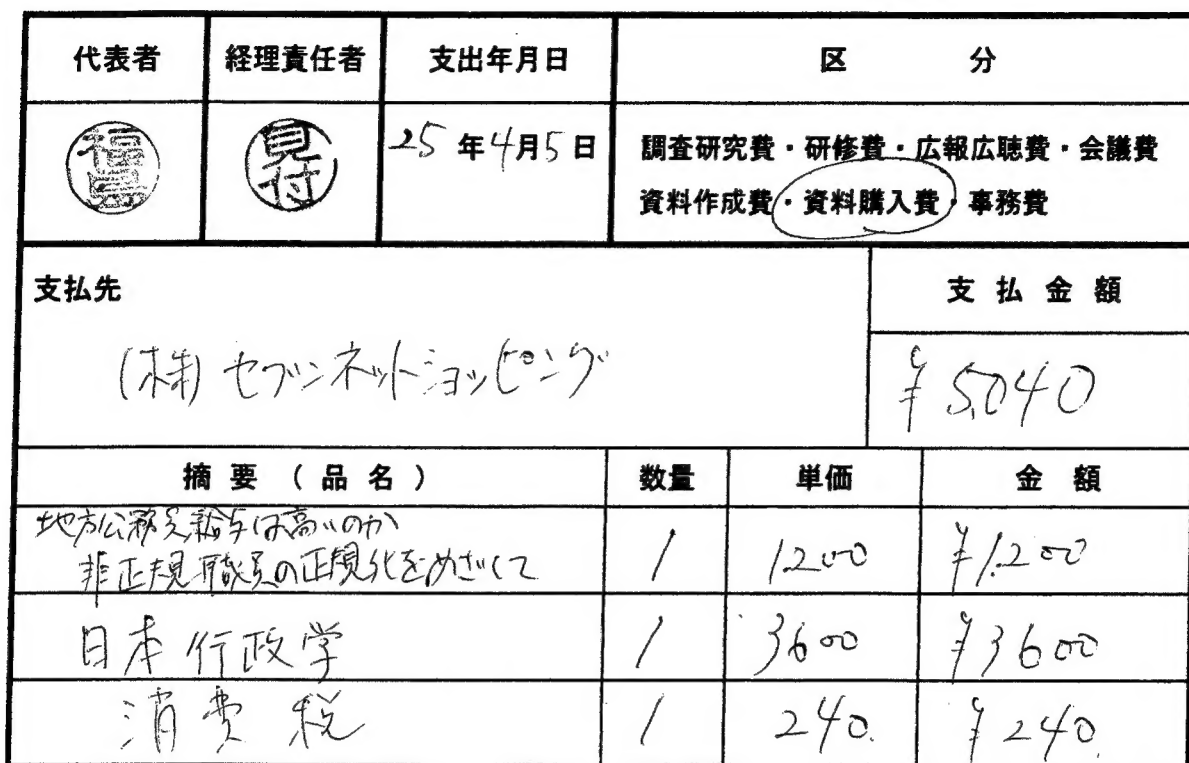 代表者 経理責任者 支出年月日 区 分
福島 見付 25年4月5日 調査研究費・研修費・広報広聴費・会議費
資料作成費・資料購入費・事務費
支払先 支払金額
(株)セブンネットショッピング ¥5,040
摘要(品名) 数量 単価 金額
地方公務員給与は高いのか
非正規職員の正規化をめざして 1 1,200 ¥1,200
日本行政学 1 3600 ¥3600
消費税 1 240. ¥240.